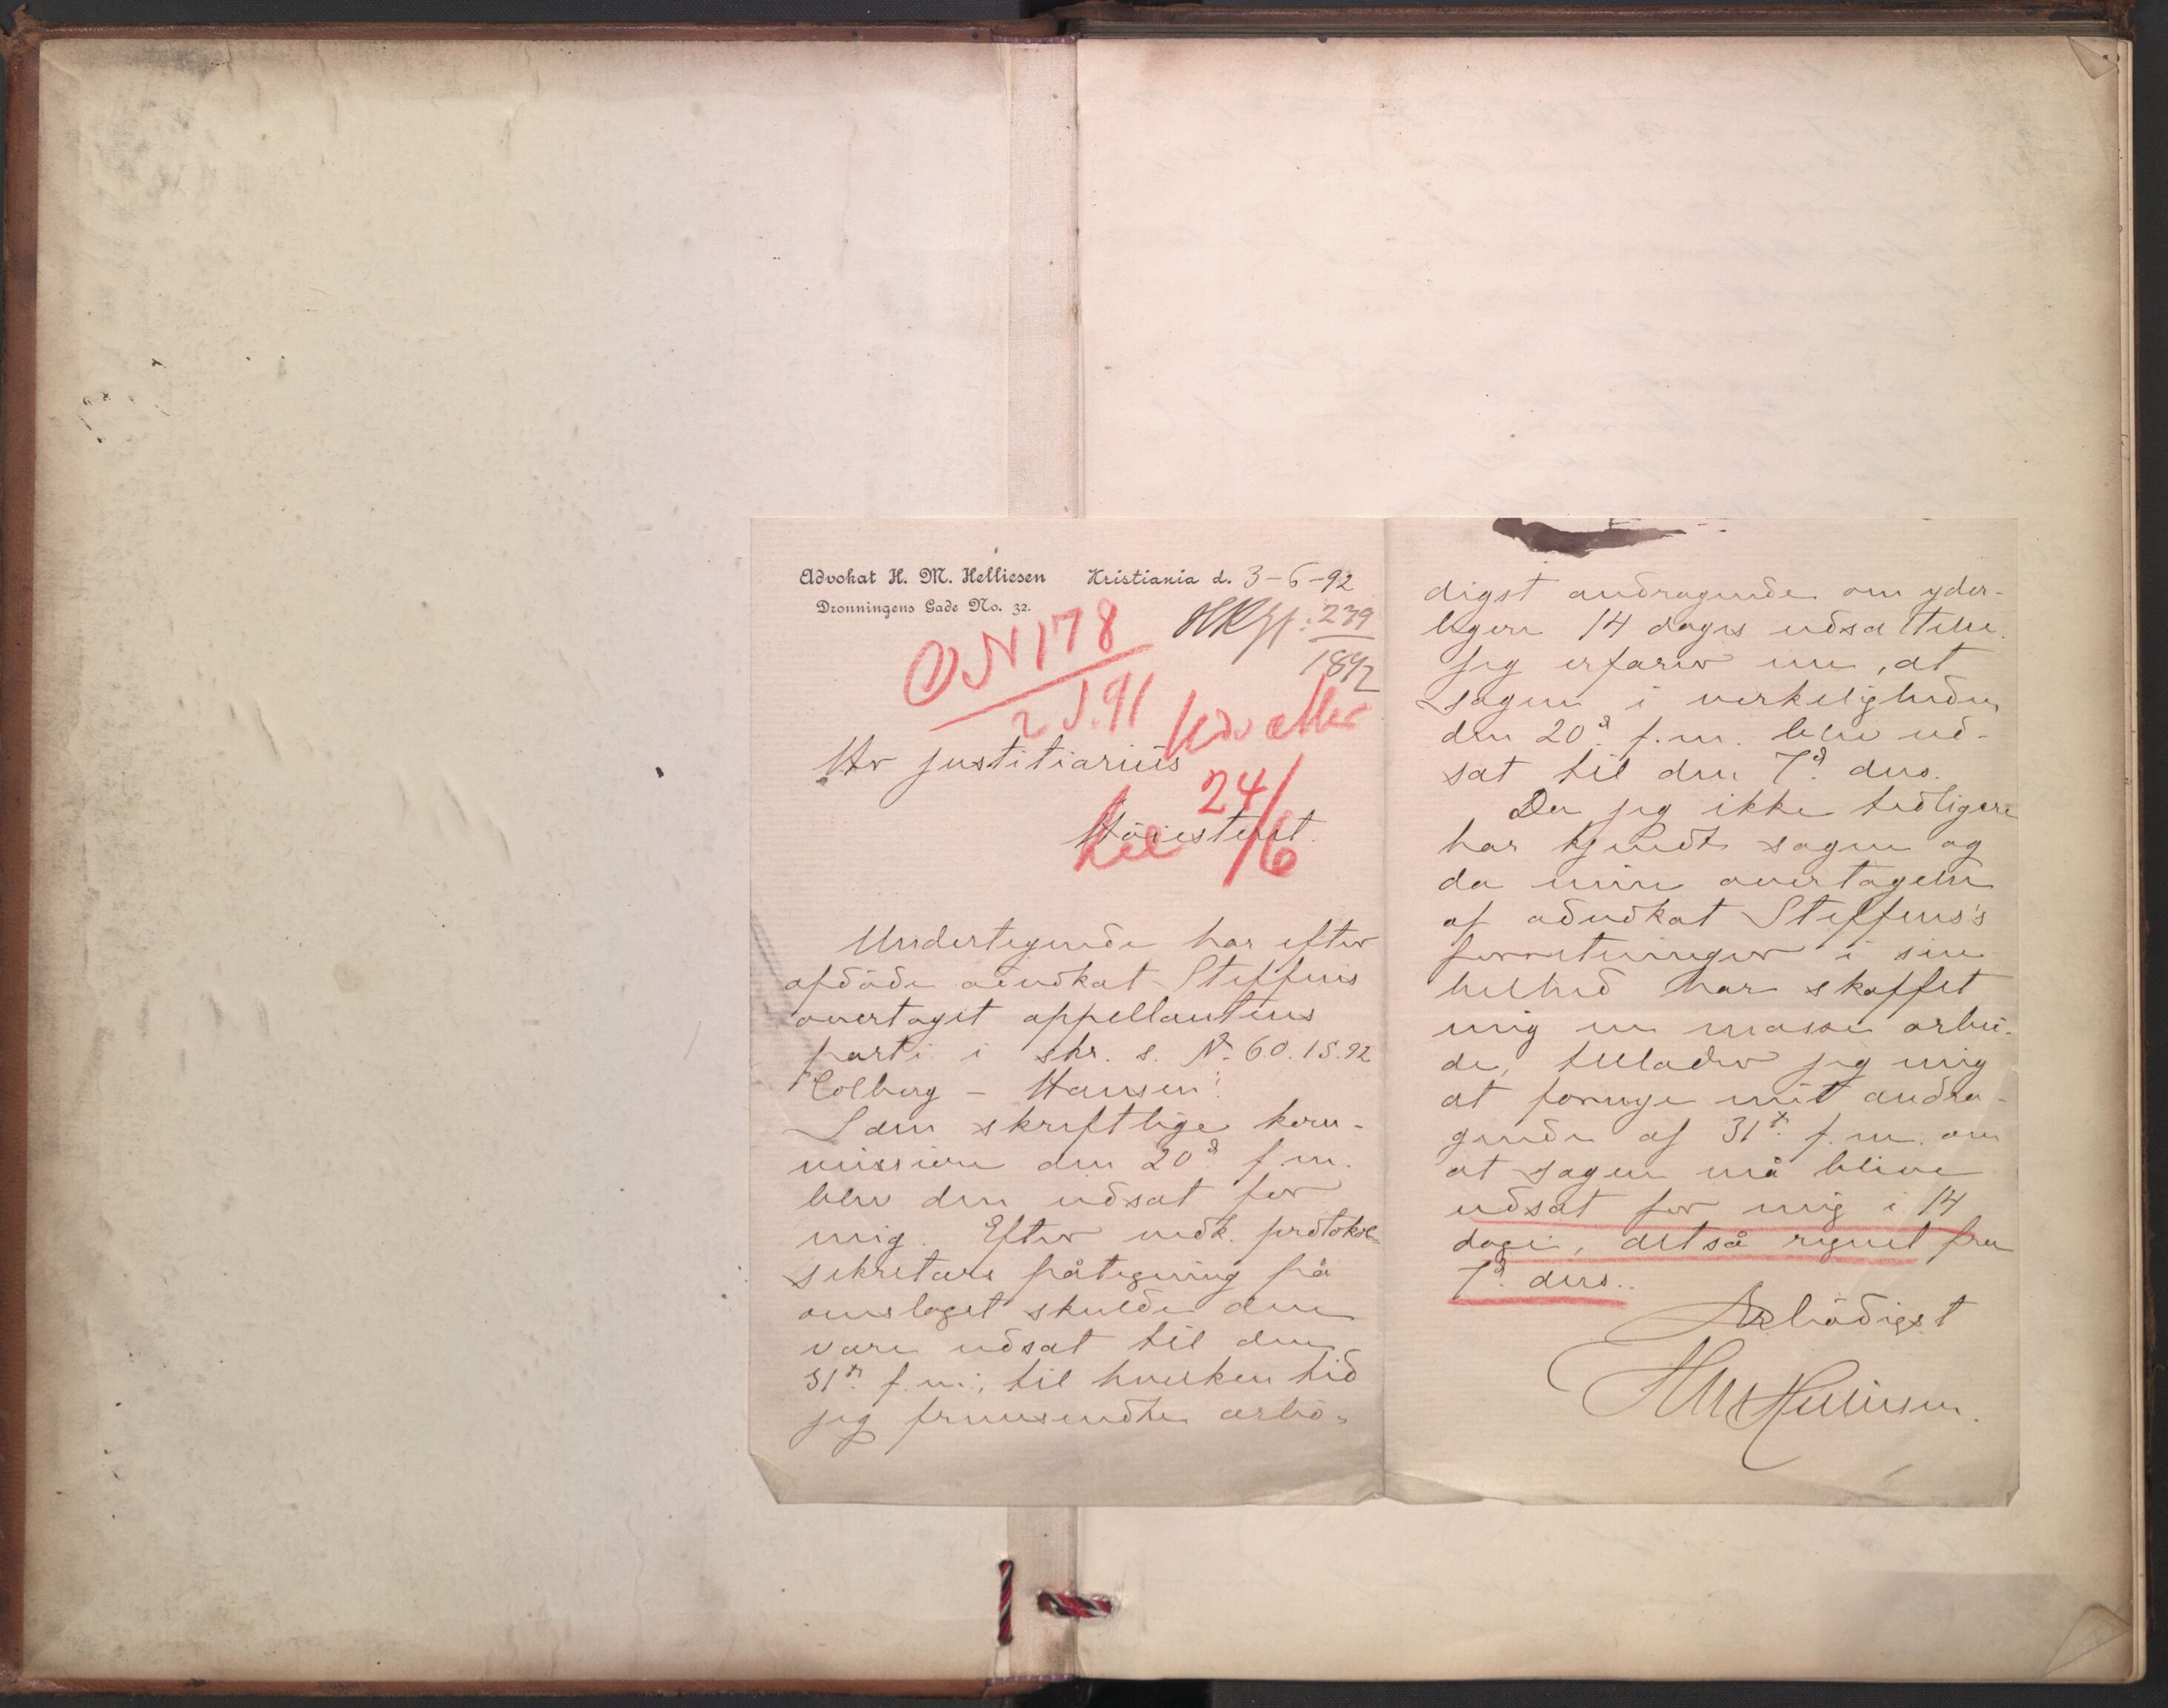 Advokat H. M. Helliesen Kristiania d. 3-6-92
Dronningens Gade No. 32.
N 178 : 239
2 S. 91 1892
Udsættes
Hr justitiarius
24/6
til
Höiesteret.
Undertegnede har efter
afdöde advokat Steffens
overtaget appellantens
parti i skr. s. No. 60. 1S. 92
Colberg - Hansen.
I den skriftlige kom-
mission den 20d. f.m.
blev den udsat for
mig. Efter vedk. protokol-
sekretærs påtegning på
omslaget skulde den
være udsat til den
31te. f.m., til hvilken tid
jeg fremsendte ærbö-
digst andragende om yder-
ligere 14 dages udsættelse.
Jeg erfarer nu, at
sagen i virkeligheden
den 20d. f.m. blev ud-
sat til den 7d. ds.
Da jeg ikke tidligere
har kjendt sagen og
da min overtagelse
af advokat Steffens's
forretninger i sin
helhed har skaffet
mig en masse arbei-
de, tillader jeg mig
at fornye mit andra-
gende af 31te. f.m. om
at sagen må blive
udsat for mig i 14
dage, altså regnet fra
7d. ds.
Ærbödigst
HM Helliesen.